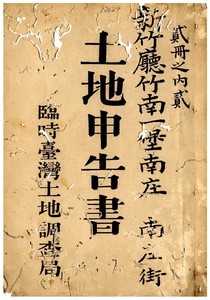 貳冊之內貳
新竹廳竹南一堡南庄 南庄街
土地申告書
臨時臺灣土地調查局